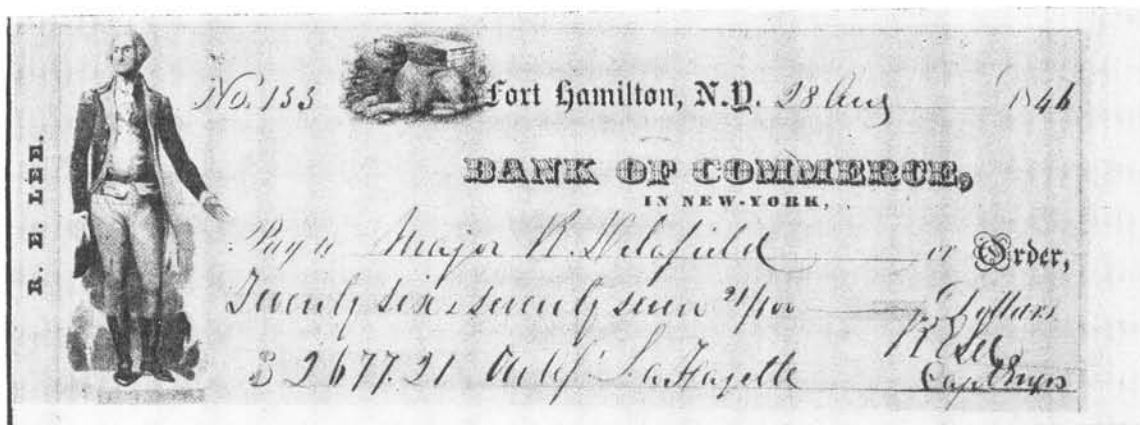 R. E. LEE.
No. 153 Fort Hamilton, N.Y. 28 Aug 1846
BANK OF COMMERCE,
IN NEW-YORK,
Pay to Major R. Delafield or Order,
Twenty six seventy seven 21/100 Dollars
$ 2677.21 LaFayette R E Lee
Capt Engrs